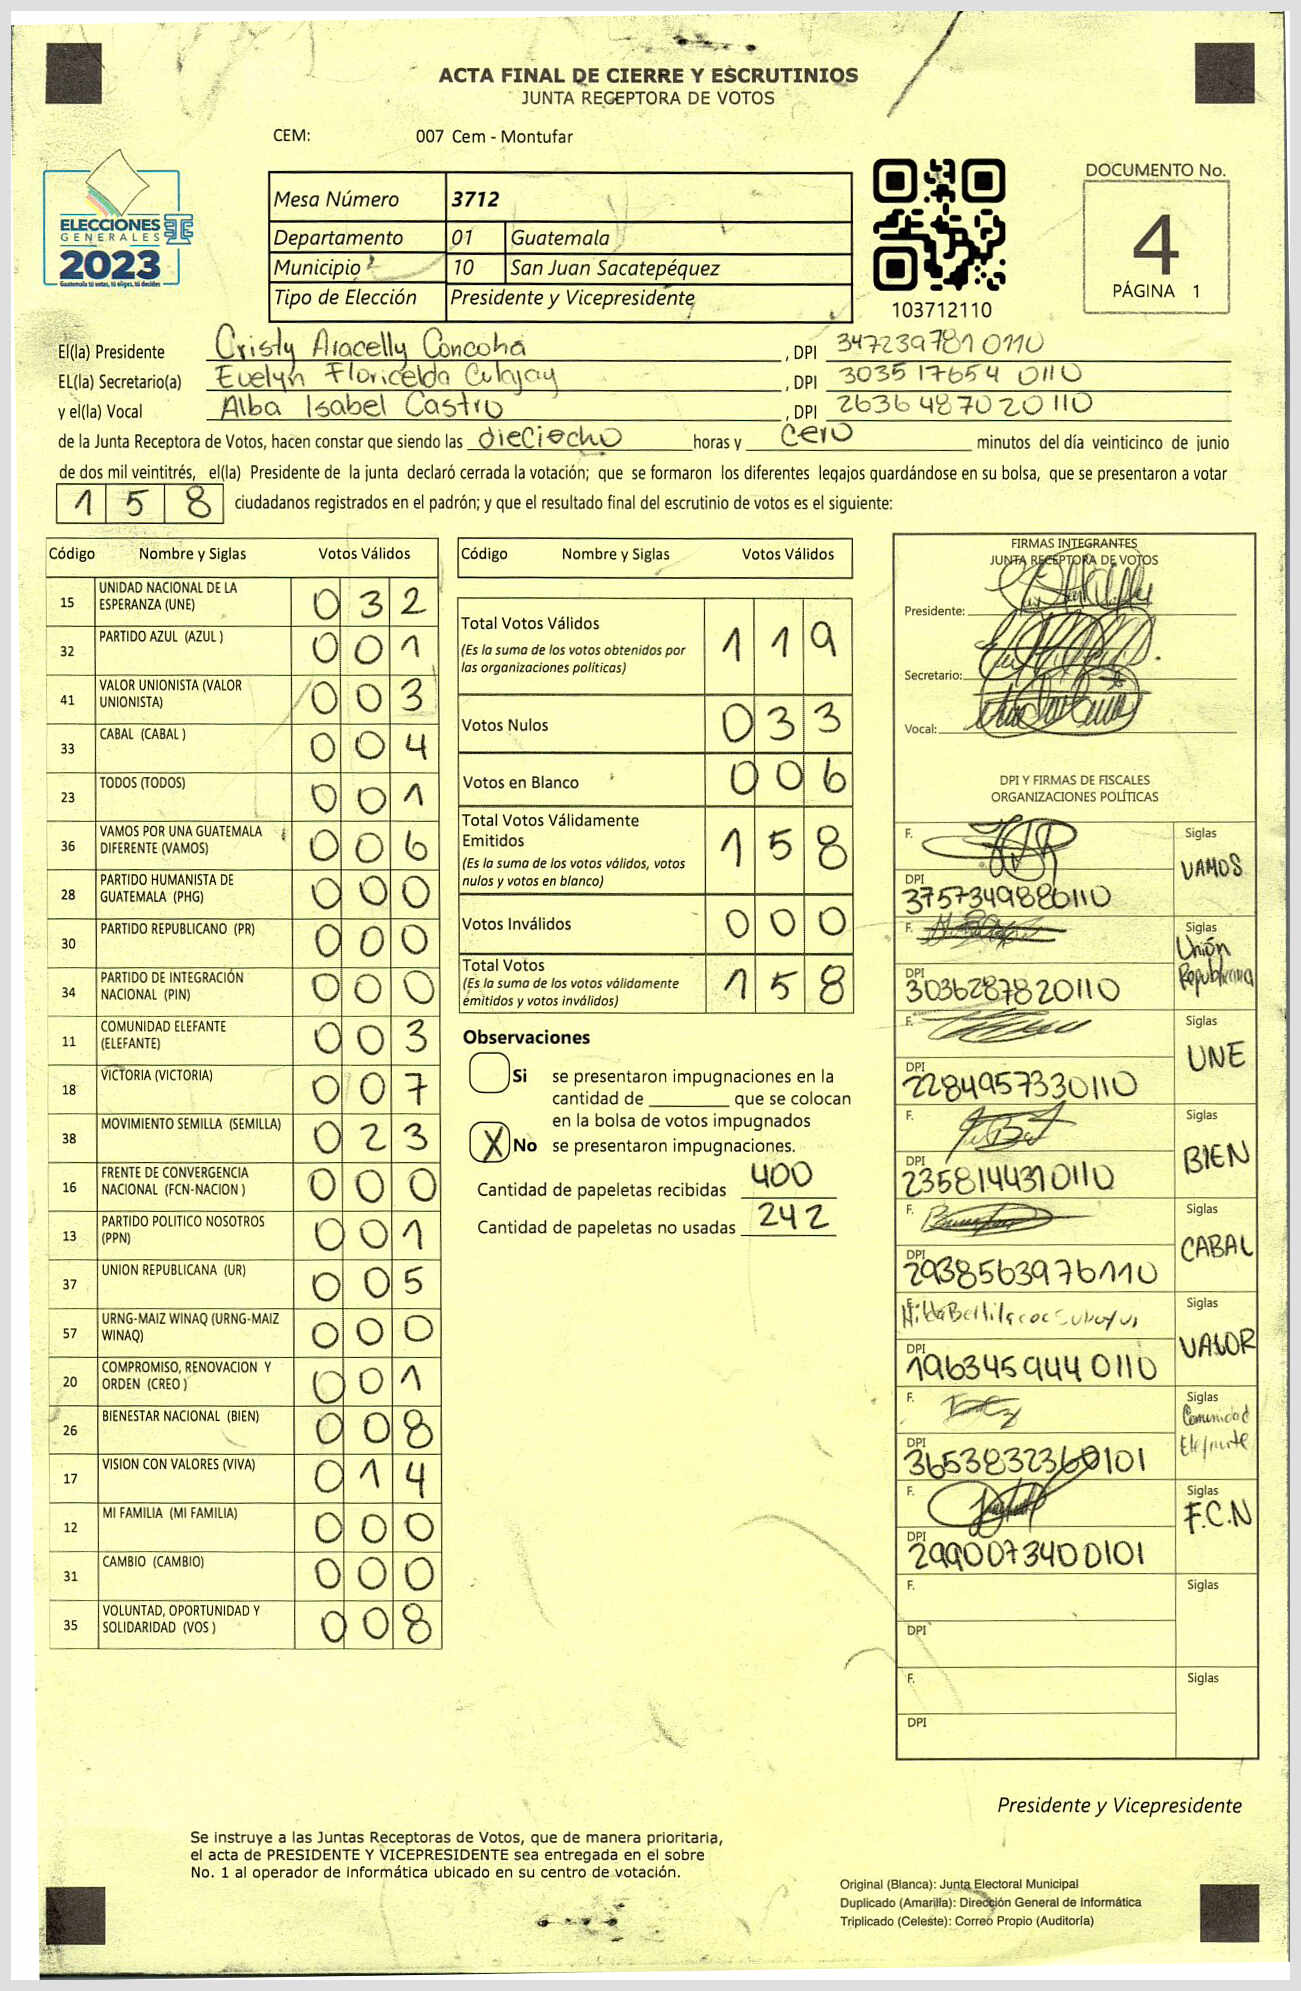 ACTA FINAL DE CIERRE Y ESCRUTINIOS
JUNTA RECEPTORA DE VOTOS
CEM: 007 Cem - Montufar
ELECCIONES
GENERALES
2023
Guatemala tú votas, tú eliges, tú decides
Mesa Número 3712
Departamento 01 Guatemala
Municipio 10 San Juan Sacatepéquez
Tipo de Elección Presidente y Vicepresidente
103712110
DOCUMENTO No.
4
PÁGINA 1
El(la) Presidente Cristy Aracelly Concoha, DPI 347239781 0110
EL(la) Secretario(a) Evelyn Floricelda Culajay, DPI 303517654 0110
y el(la) Vocal Alba Isabel Castro, DPI 2636487020110
de la Junta Receptora de Votos, hacen constar que siendo las dieciocho horas y cero minutos del día veinticinco de junio
de dos mil veintitrés, el(la) Presidente de la junta declaró cerrada la votación; que se formaron los diferentes legajos guardándose en su bolsa, que se presentaron a votar
158 ciudadanos registrados en el padrón; y que el resultado final del escrutinio de votos es el siguiente:
Código Nombre y Siglas Votos Válidos
15 UNIDAD NACIONAL DE LA ESPERANZA (UNE) 032
32 PARTIDO AZUL (AZUL ) 001
41 VALOR UNIONISTA (VALOR UNIONISTA) 003
33 CABAL (CABAL ) 004
23 TODOS (TODOS) 001
36 VAMOS POR UNA GUATEMALA DIFERENTE (VAMOS) 006
28 PARTIDO HUMANISTA DE GUATEMALA (PHG) 000
30 PARTIDO REPUBLICANO (PR) 000
34 PARTIDO DE INTEGRACIÓN NACIONAL (PIN) 000
11 COMUNIDAD ELEFANTE (ELEFANTE) 003
18 VICTORIA (VICTORIA) 007
38 MOVIMIENTO SEMILLA (SEMILLA) 023
16 FRENTE DE CONVERGENCIA NACIONAL (FCN-NACION ) 000
13 PARTIDO POLITICO NOSOTROS (PPN) 001
37 UNION REPUBLICANA (UR) 005
57 URNG-MAIZ WINAQ (URNG-MAIZ WINAQ) 000
20 COMPROMISO, RENOVACION Y ORDEN (CREO ) 001
26 BIENESTAR NACIONAL (BIEN) 008
17 VISION CON VALORES (VIVA) 014
12 MI FAMILIA (MI FAMILIA) 000
31 CAMBIO (CAMBIO) 000
35 VOLUNTAD, OPORTUNIDAD Y SOLIDARIDAD (VOS ) 008
Código Nombre y Siglas Votos Válidos
Total Votos Válidos 119
(Es la suma de los votos obtenidos por
las organizaciones políticas)
Votos Nulos 033
Votos en Blanco 006
Total Votos Válidamente
Emitidos 158
(Es la suma de los votos válidos, votos
nulos y votos en blanco)
Votos Inválidos 000
Total Votos 158
(Es la suma de los votos válidamente
emitidos y votos inválidos)
Observaciones
Si se presentaron impugnaciones en la
cantidad de ________ que se colocan
en la bolsa de votos impugnados
X No se presentaron impugnaciones.
Cantidad de papeletas recibidas 400
Cantidad de papeletas no usadas 242
FIRMAS INTEGRANTES
JUNTA RECEPTORA DE VOTOS
Presidente:
Secretario:
Vocal:
DPI Y FIRMAS DE FISCALES
ORGANIZACIONES POLÍTICAS
F. Siglas VAMOS
DPI 3757349880110
F. Siglas Unión Republicana
DPI 3036287820110
F. Siglas UNE
DPI 2284957330110
F. Siglas BIEN
DPI 2358144310110
F. Siglas CABAL
DPI 2938563976110
F. Hilda Siglas VALOR
DPI 1963459440110
F. Siglas Comunidad Elefante
DPI 3653832360101
F. Siglas F.C.N
DPI 2990073400101
F. Siglas
DPI
F. Siglas
DPI
Presidente y Vicepresidente
Se instruye a las Juntas Receptoras de Votos, que de manera prioritaria,
el acta de PRESIDENTE Y VICEPRESIDENTE sea entregada en el sobre
No. 1 al operador de informática ubicado en su centro de votación.
Original (Blanca): Junta Electoral Municipal
Duplicado (Amarilla): Dirección General de Informática
Triplicado (Celeste): Correo Propio (Auditoría)